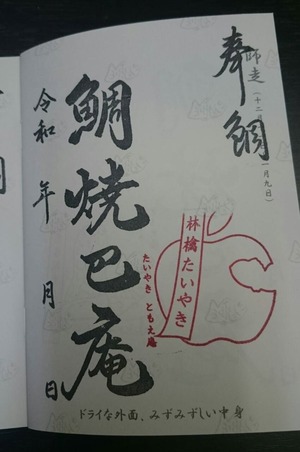 奉鯛
師走(十二月
一月九日)
林檎たいやき
たいやき ともえ庵
鯛焼巴庵
令和 年 月 日
ドライな外面、みずみずしい中身